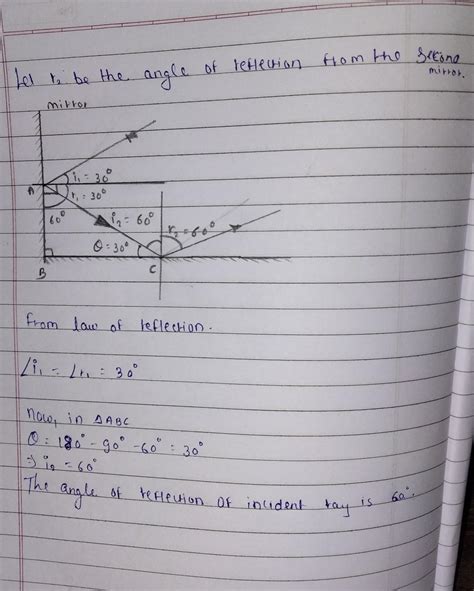 Let r₂ be the angle of reflection from the second
mirror.
mirror
A
i₁ = 30°
r₁ = 30°
60°
i₂ = 60°
r₂ = 60°
θ = 30°
B
C
from law of reflection.
∠i₁ = ∠r₁ = 30°
now, in △ABC
θ = 180° - 90° - 60° = 30°
⇒ i₂ = 60°
The angle of reflection of incident ray is 60°.